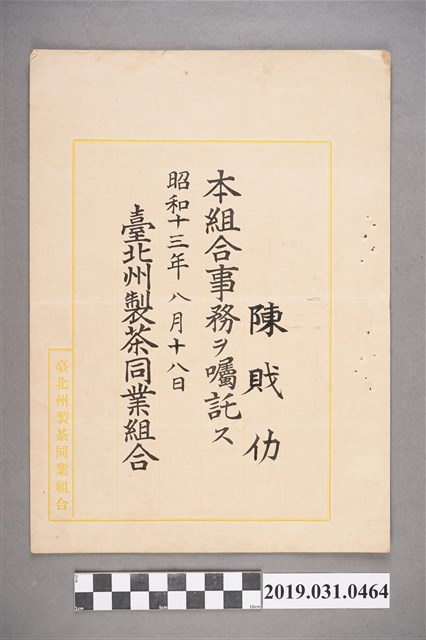 陳戝仂
本組合事務ヲ囑託ス
昭和十三年八月十八日
臺北州製茶同業組合
臺北州製茶同業組合
2019.031.0464